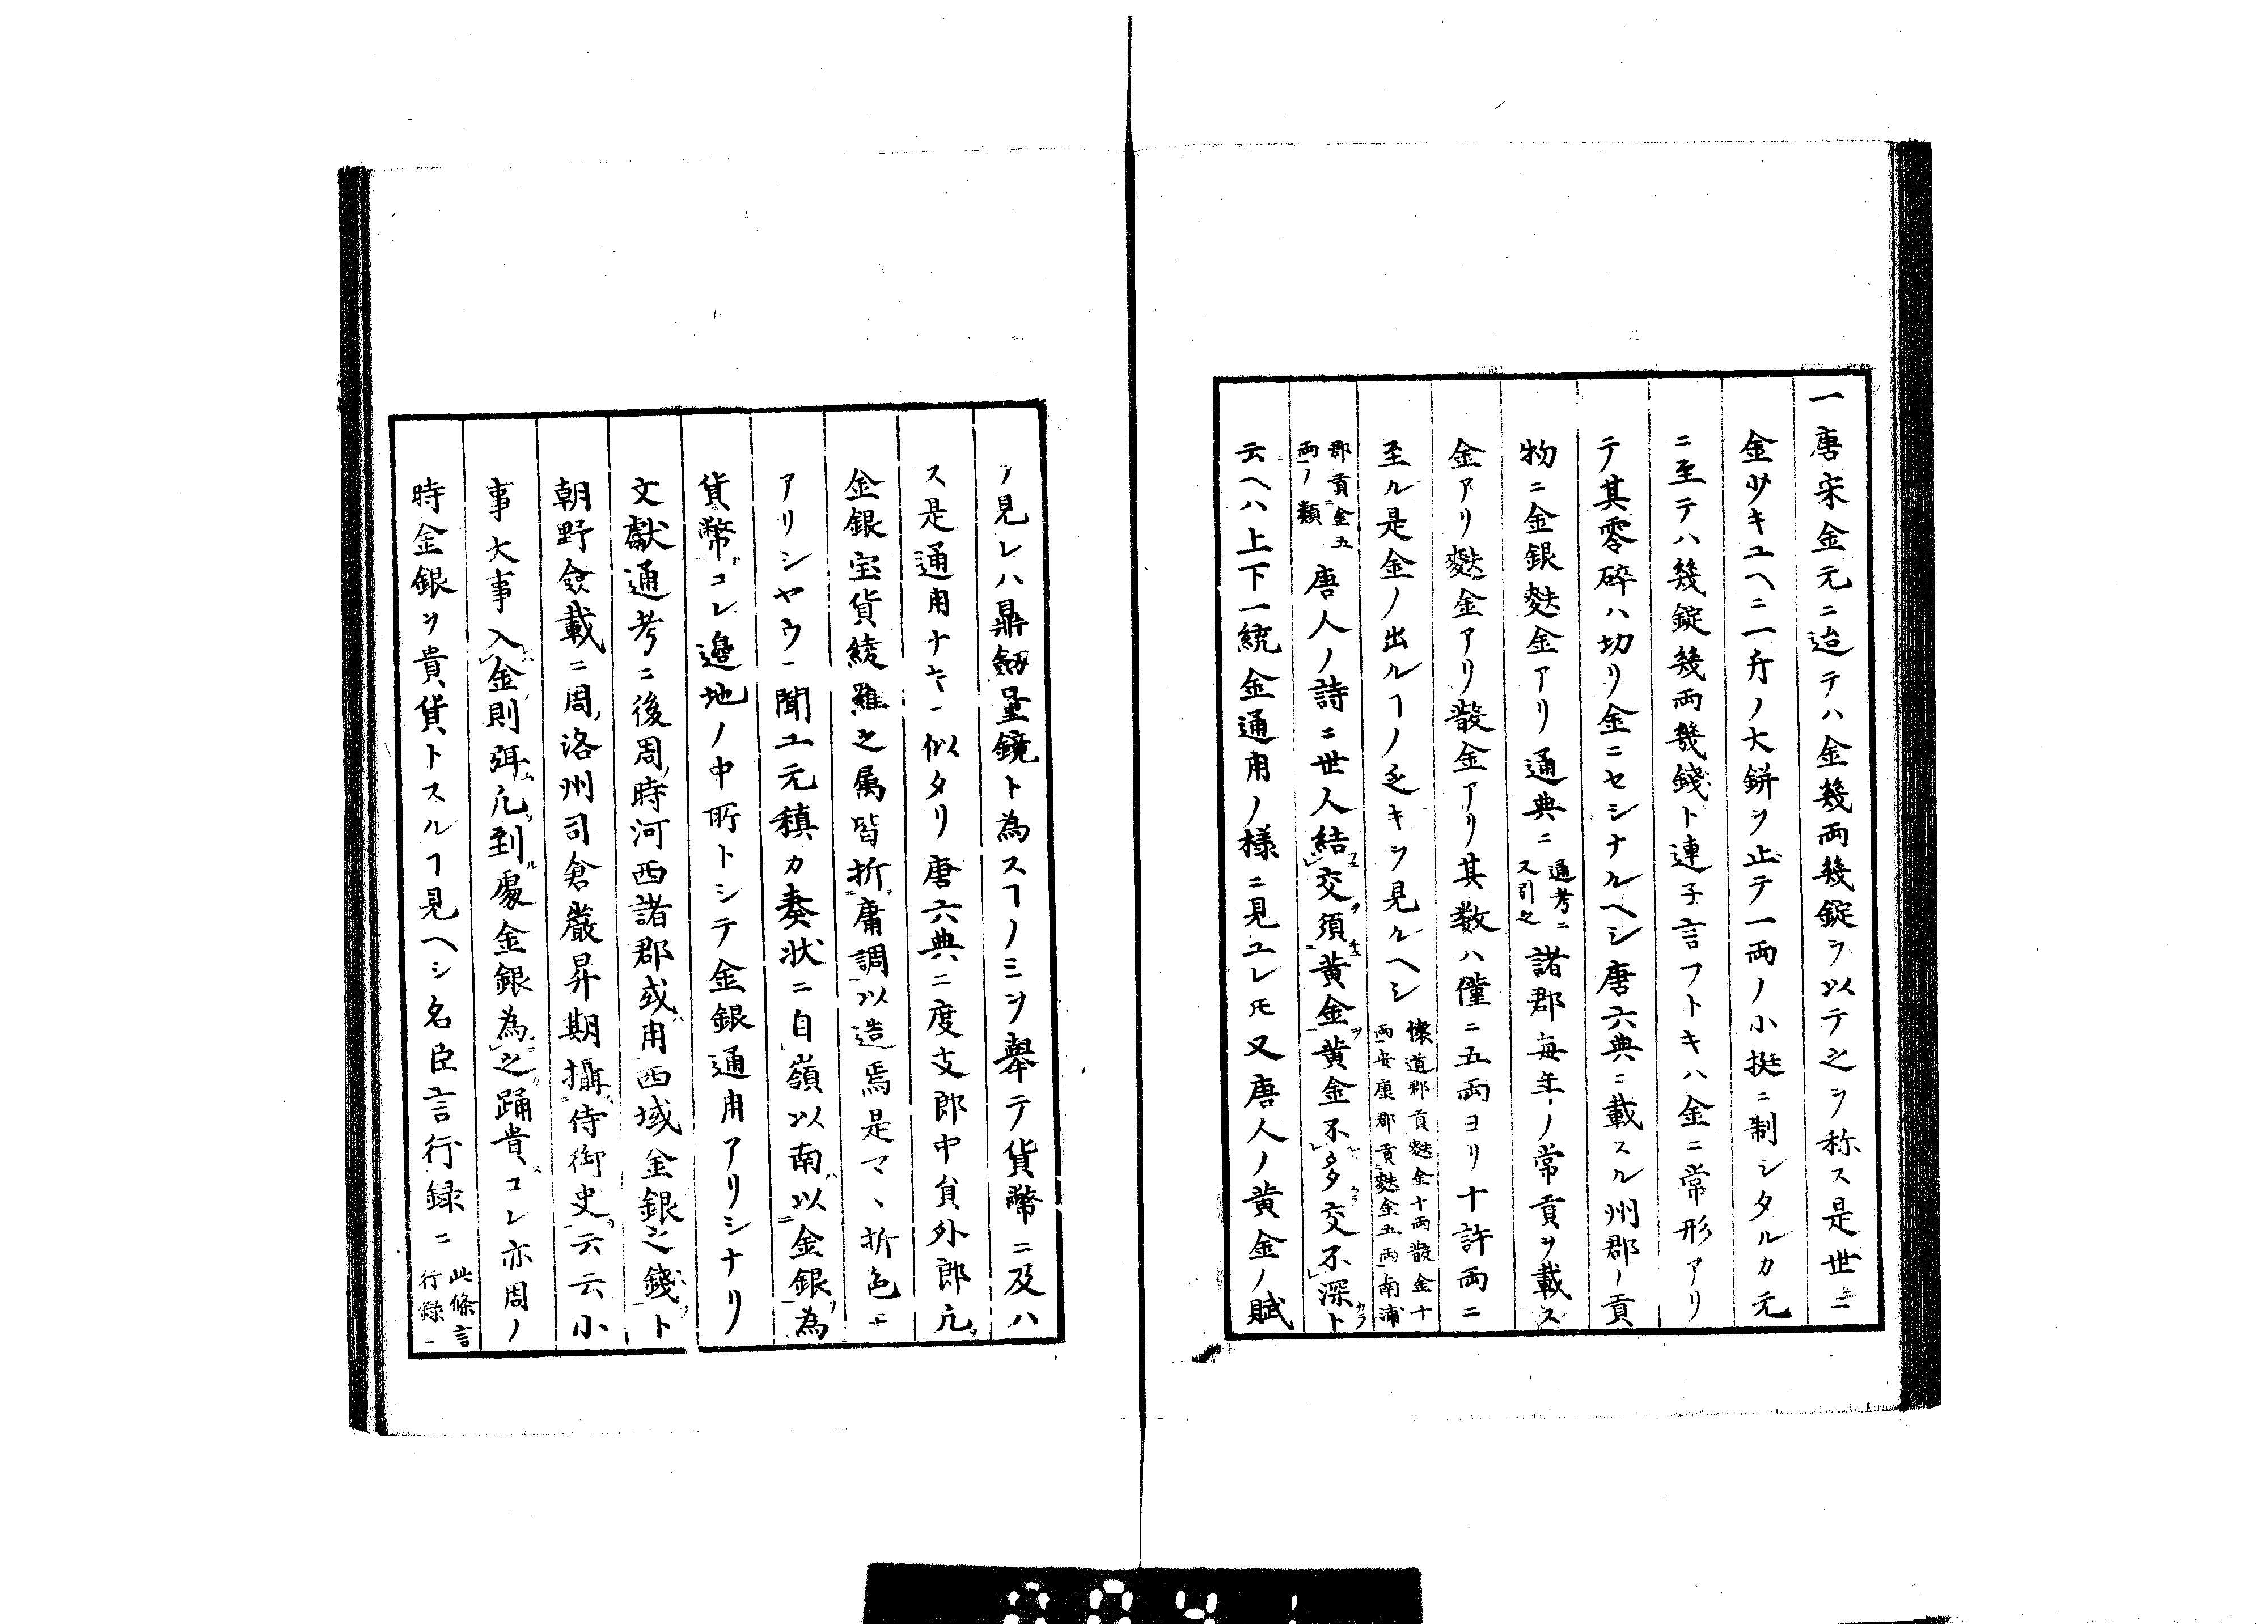 一唐宋金元ニ迨テハ金幾両幾錠ヲ以テ之ヲ称ス是世ニ
金少キユヘニ一斤ノ大餅ヲ止テ一両ノ小挺ニ制シタルカ元
ニ至テハ幾錠幾両幾錢ト連子言フトキハ金ニ常形アリ
テ其零碎ハ切リ金ニセシナルヘシ唐六典ニ載スル州郡ノ貢
物ニ金銀麩金アリ通典ニ通考ニ又引之諸郡毎年ノ常貢ヲ載ス
金アリ麩金アリ散金アリ其数ハ僅ニ五両ヨリ十許両ニ
至ル是金ノ出ルヿノ乏キヲ見ルヘシ懐道郡貢麩金十両散金十両安康郡貢麩金五両南浦
郡貢金五両ノ類唐人ノ詩ニ世人結交須黄金黄金不多交不深ト
云ヘハ上下一統金通用ノ様ニ見ユレ𪜈又唐人ノ黄金ノ賦
ノ見レハ鼎劔量鏡ト為スヿノミヲ舉テ貨幣ニ及ハ
ス是通用ナキニ似タリ唐六典ニ度支郎中貟外郎凢
金銀宝貨綾羅之属皆折庸調以造焉是マヽ折色ニ
アリシヤウニ聞ユ元稹カ奏状ニ自嶺以南以金銀為
貨幣コレ邉地ノ中所トシテ金銀通用アリシナリ
文獻通考ニ後周時河西諸郡或用西域金銀之錢ト
朝野僉載ニ周洛州司倉嚴昇期攝侍御史云云小
事大事入金則弭凢到處金銀為之踊貴コレ亦周ノ
時金銀ヲ貴貨トスルヿ見ヘシ名臣言行録ニ此條言行録ニ
0041